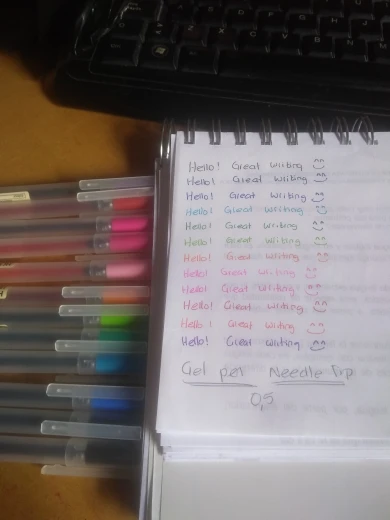 Hello! Great writing
Hello! Great writing
Hello! Great writing
Hello! Great writing
Hello! Great writing
Hello! Great writing
Hello! Great writing
Hello! Great writing
Hello! Great writing
Hello! Great writing
Hello! Great writing
Hello! Great writing
Gel pel Needle Tip
0,5